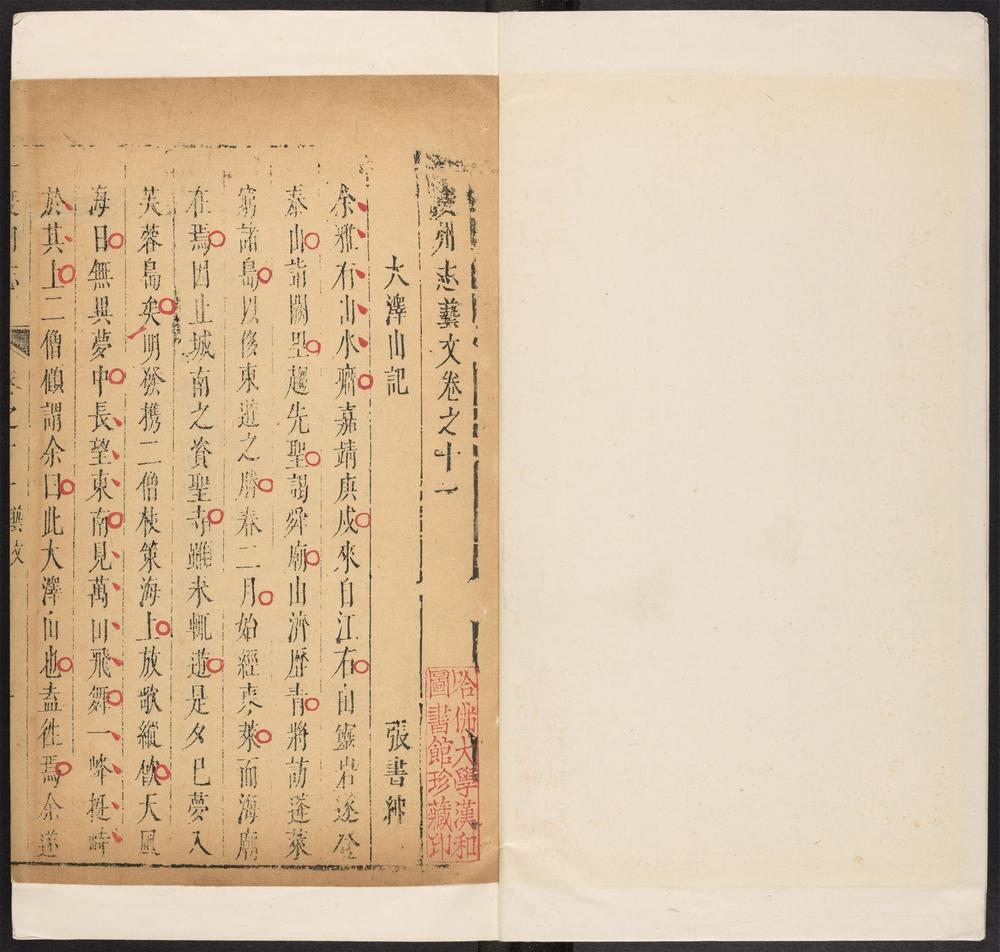 萊州志藝文卷之十一
大澤山記
張書紳
余雅右山水癖嘉靖庚戌來自江右由靈岩遂登
泰山詣闕里趨先聖謁舜廟由濟歷青將訪蓬萊
窮諸島以侈東遊之勝春二月始經東萊而海廟
在焉因止城南之資聖寺雖未輒遊是夕已夢入
芙蓉島矣明發携二僧杖策海上放歌縱飲天風
海日無異夢中長望東南見萬山飛舞一峰挺峙
於其上二僧顧謂余曰此大澤山也盍徃焉余遂
州志
卷之十一
藝文
一
哈佛大學漢和
圖書館珍藏印